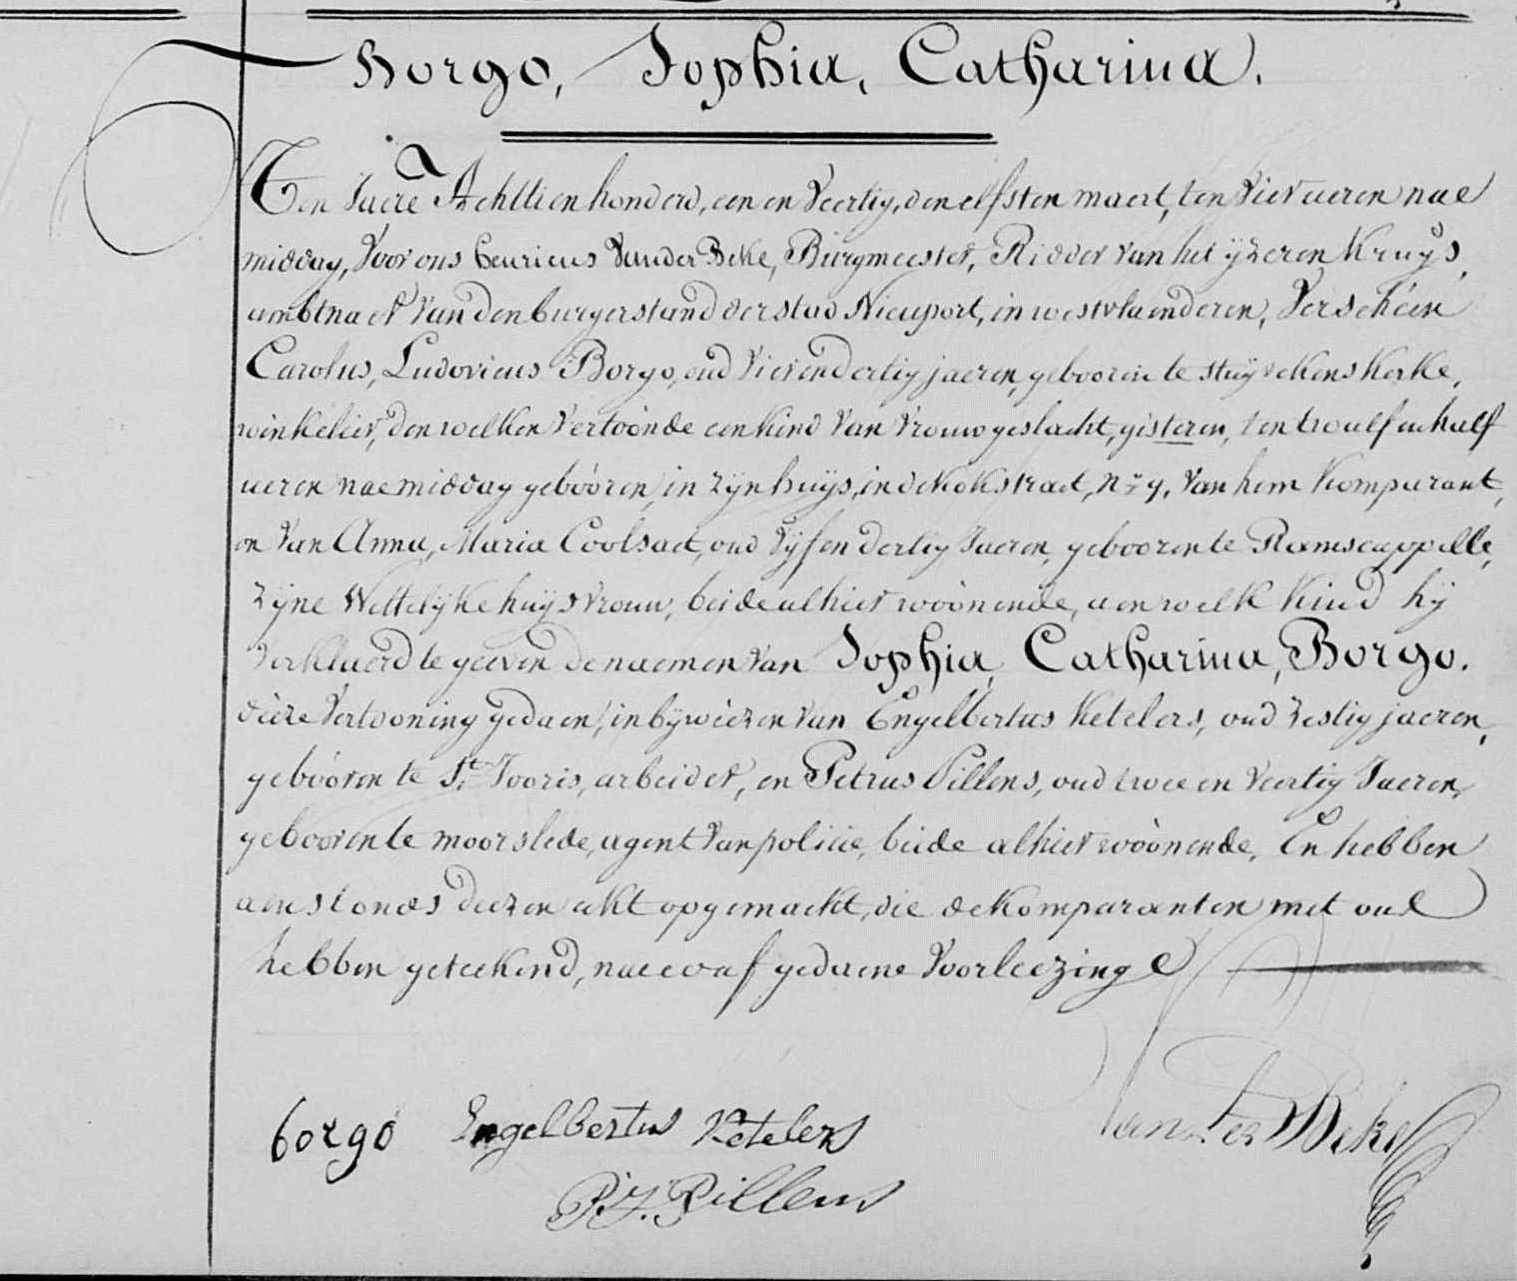 Borgo, Sophia, Catharina.
Ten Jaere Achttien honderd, een en Veertig, den elfsten maert, ten Vier ueren nae
middag, Voor ons henricus Vander Beke, Burgmeester, Ridder van het ijzeren Kruijs,
ambtnaer Van den burgerstand der stad Nieuport, in westvlaenderen, Verscheen
Carolus, Ludovicus Borgo, oud Vierendertig jaeren, gebooren te stuijvekenskerke,
winkelier, den welken Vertoonde een kind Van Vrouwgeslacht, gisteren, ten twaelf en half
ueren naemiddag gebooren, in zijn huijs, in de kokstraet, Nr 9, Van hem Komparant,
en Van Anna, Maria Coolsaet, oud Vijfendertig Jaeren, gebooren te Ramscappelle,
zijne Wettelijke huijsvrouw, beide alhier woonende, aen welk kind hij
Verklaerd te geeven de naemen Van Sophia, Catharina, Borgo.
dieze Vertooning gedaen, in bijweezen van Engelbertus Ketelers, oud zestig jaeren,
gebooren te St. Jooris, arbeider, en Petrus Pillens, oud twee en Veertig Jaeren,
gebooren te moorslede, agent Van policie, beide alhier woonende, En hebben
aenstonds deezen akt opgemaekt, die de Komparanten met ons
hebben geteekend, naer er af gedaene Voorleezinge
borgo Engelbertus Ketelers Vander Beke
P. J. Pillens